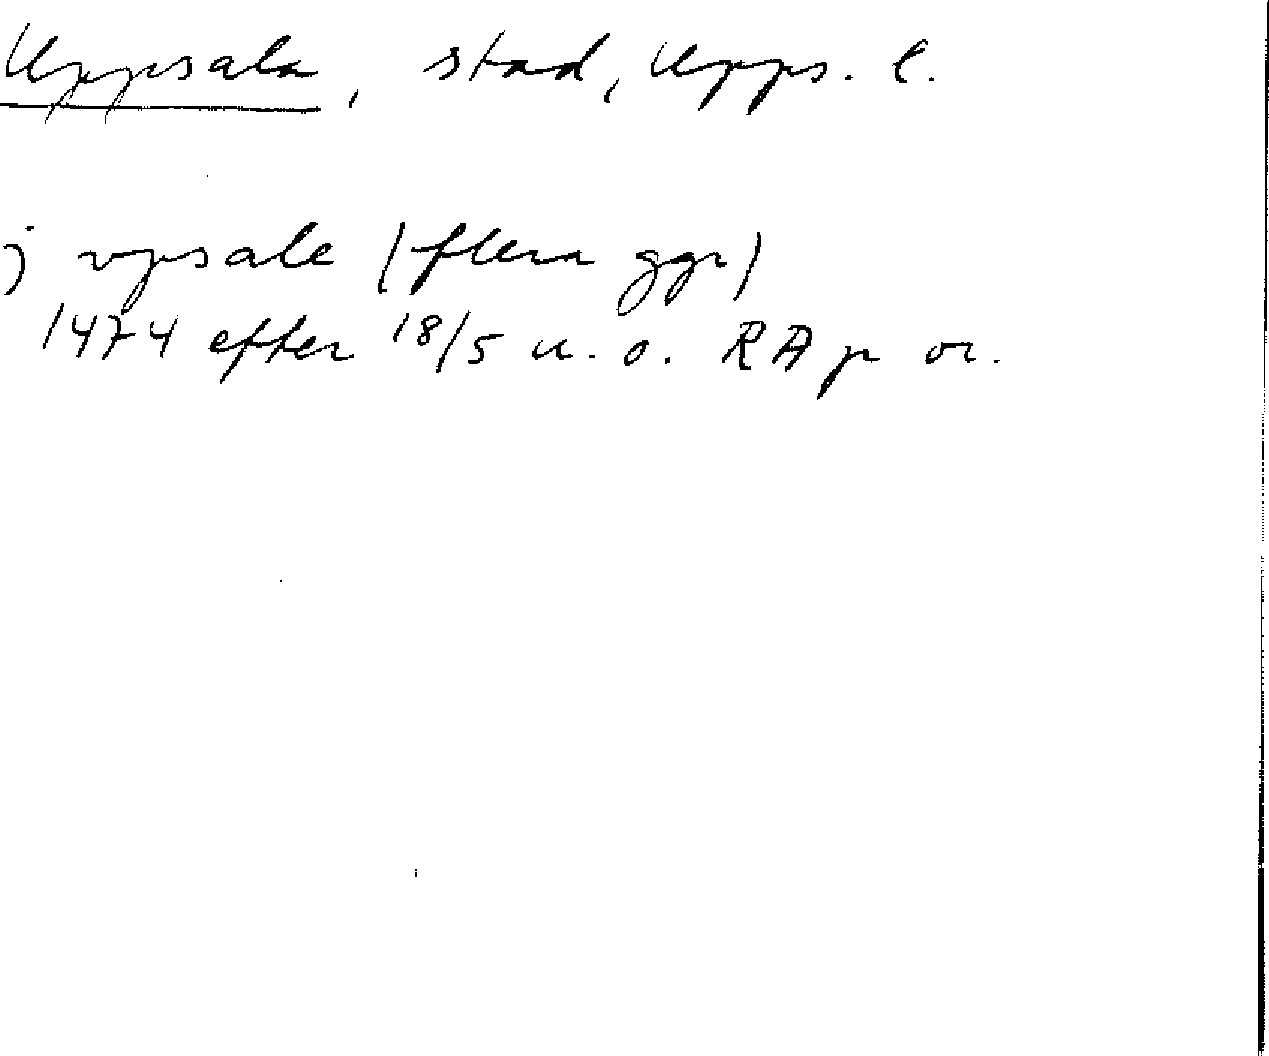 Uppsala, stad, Upps. l.
j vpsale (flera ggr)
1474 efter 18/5 u. o. RA p or.